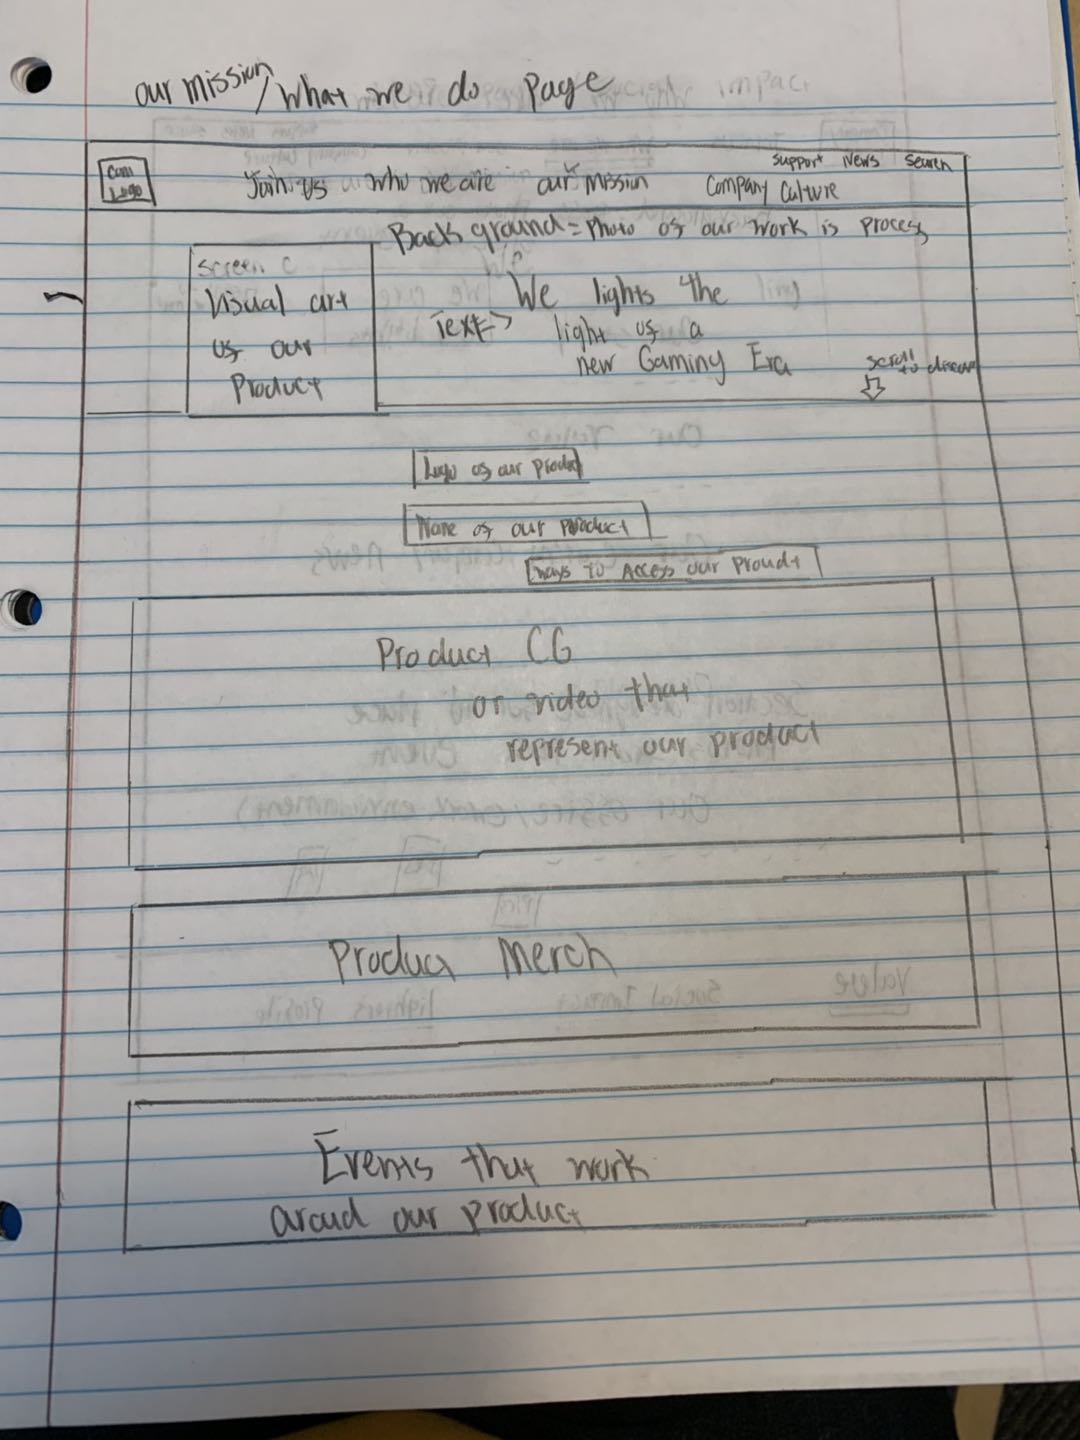 our mission/What we do Page
Com Logo
Support News Search
Join us who we are our mission Company Culture
Background = Photo of our work is process
Screen c
Visual art
of our
Product
Text->
We lights the
light of a
new Gaming Era
scroll
to discover
Logo of our product
Name of our product
Ways to Access our Proudt
Product CG
or video that
represent our product
Product Merch
Events that work
aroud our product